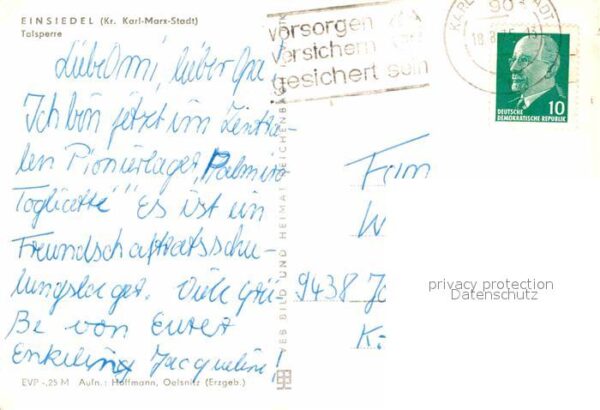 EINSIEDEL (Kr. Karl-Marx-Stadt)
Talsperre
Liebe Omi, lieber Opa!
Ich bin jetzt im Zentra-
len Pionierlager „Palmiro
Togliatti" Es ist ein
Freundschaftsratsschu-
lungslager. Viele Grü-
ße von Eurer
Enkelin Jacqueline!
EVP -,25 M Aufn.: Hoffmann, Oelsnitz (Erzgeb.)
VEB BILD UND HEIMAT REICHENBACH
vorsorgen
versichern
gesichert sein
KARL
STADT
90
18.8.75
10
DEUTSCHE
DEMOKRATISCHE REPUBLIK
Fam
W
9438 Jo
K
privacy protection
Datenschutz